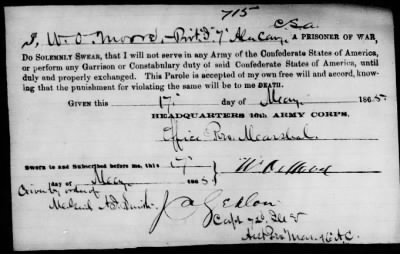 715
I, W. O. Moore Pvt D 7" Ala Cav. C.S.a. A PRISONER OF WAR,
DO SOLEMNLY SWEAR, that I will not serve in any Army of the Confederate States of America,
or perform any Garrison or Constabulary duty of said Confederate States of America, until
duly and properly exchanged. This Parole is accepted of my own free will and accord, know-
ing that the punishment for violating the same will be to me DEATH.
GIVEN this 17" day of May 1865
HEADQUARTERS 16th ARMY CORPS,
Office Pro. Marshal.
Sworn to and Subscribed before me, this 17"
day of May 1865
Given by order of
A. J. Smith
Capt 72d Ills V
Pro Mar. 16 A.C.